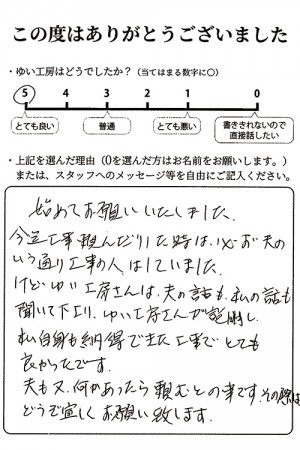 この度はありがとうございました
・ゆい工房はどうでしたか?(当てはまる数字に○)
5 4 3 2 1 0
とても良い 普通 とても悪い 書ききれないので直接話したい
・上記を選んだ理由(0を選んだ方はお名前をお願いします。)
または、スタッフへのメッセージ等を自由にご記入ください。
始めてお願いいたしました。
今迄工事頼んだりした時は、必ず夫の
いう通り工事の人はしていました。
けどゆい工房さんは、夫の話も、私の話も
聞いて下さり、ゆい工房さんが説明し、
私自身も納得できた工事でとても
良かったです。
夫も又、何かあったら頼むとの事です。その際は
どうぞ宜しくお願い致します。